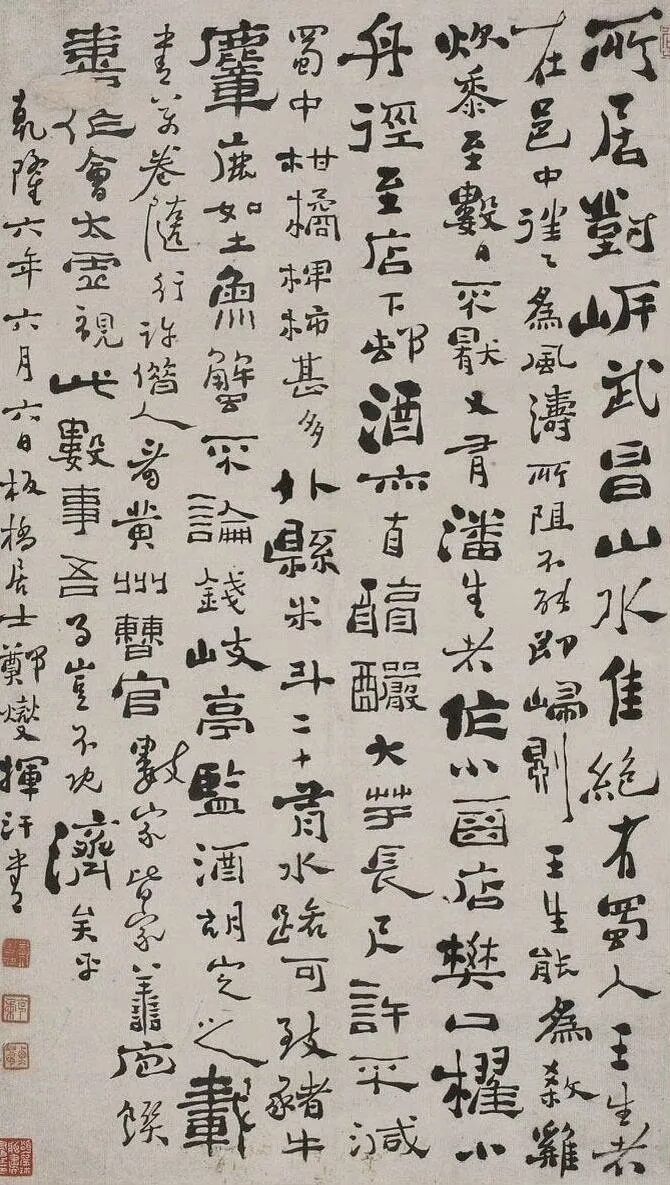 所居對岸武昌山水佳絕有蜀人王生者
在邑中往〻為風濤所阻不能即歸則王生能為殺雞
炊黍至數日不厭又有潘生者作小酒店樊口櫂小
舟徑至店下邨酒亦自醇釅大芋長尺許不減
蜀中柑橘椑柿甚多外縣米斗二十有水路可致豬牛
麞鹿如土魚蟹不論錢岐亭監酒胡定之載
書萬卷隨行許借人看黃州曹官數家皆家善庖饌
喜作會太虛視此數事吾事豈不既濟矣乎
乾隆六年六月六日板橋居士鄭燮揮汗書